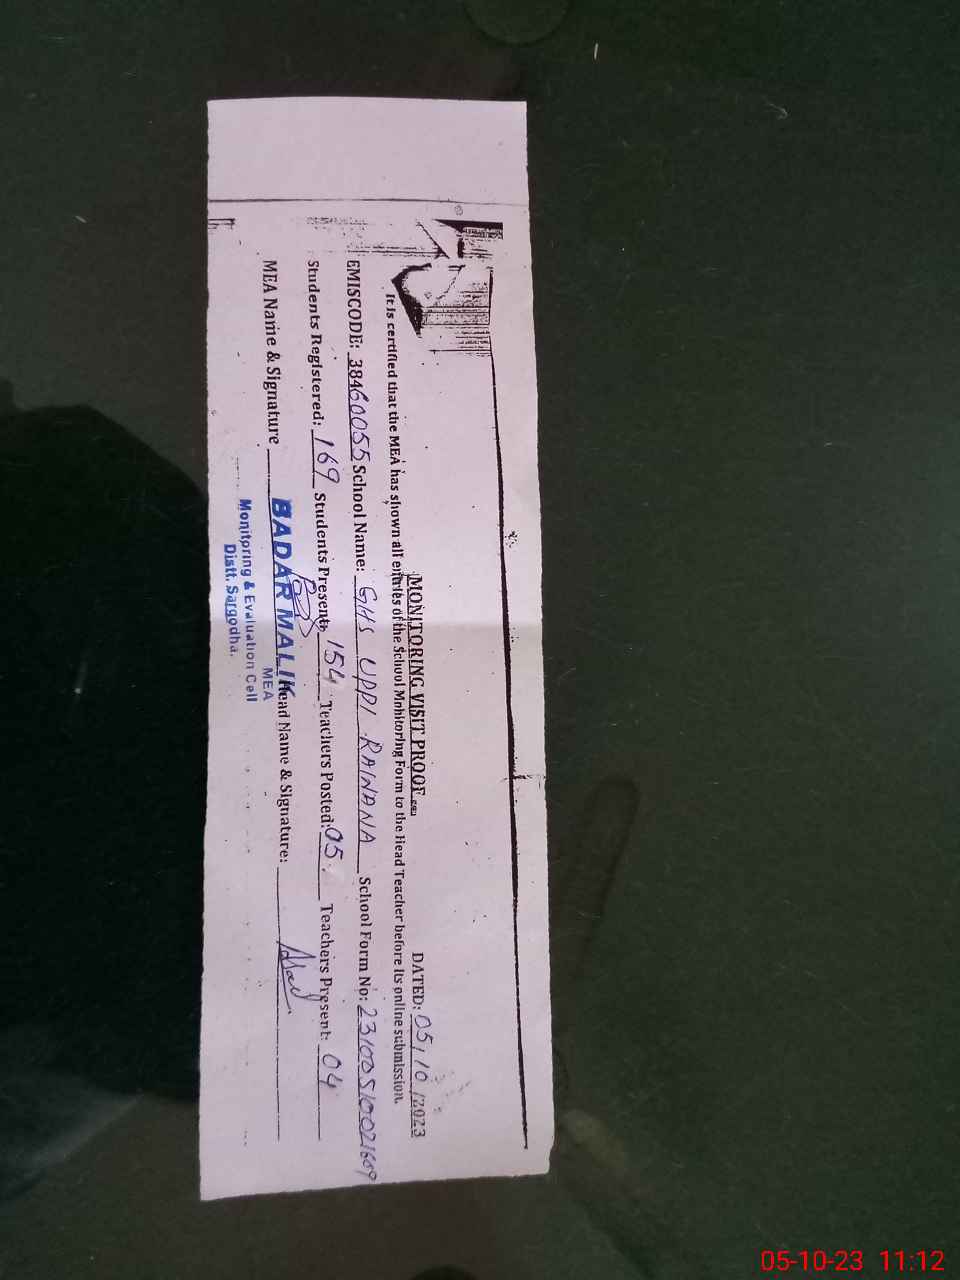 MONITORING VISIT PROOF
DATED: 05/10/2023
It is certified that the MEA has shown all entries of the School Monitoring Form to the Head Teacher before its online submission.
EMISCODE: 38460055 School Name: GHS UPPI RAWANA School Form No: 2310051002
Students Registered: 169 Students Present: 154 Teachers Posted: 05 Teachers Present: 04
MEA Name & Signature Head Name & Signature:
BADAR MALIK
MEA
Monitoring & Evaluation Cell
Distt. Sargodha.
05-10-23 11:12